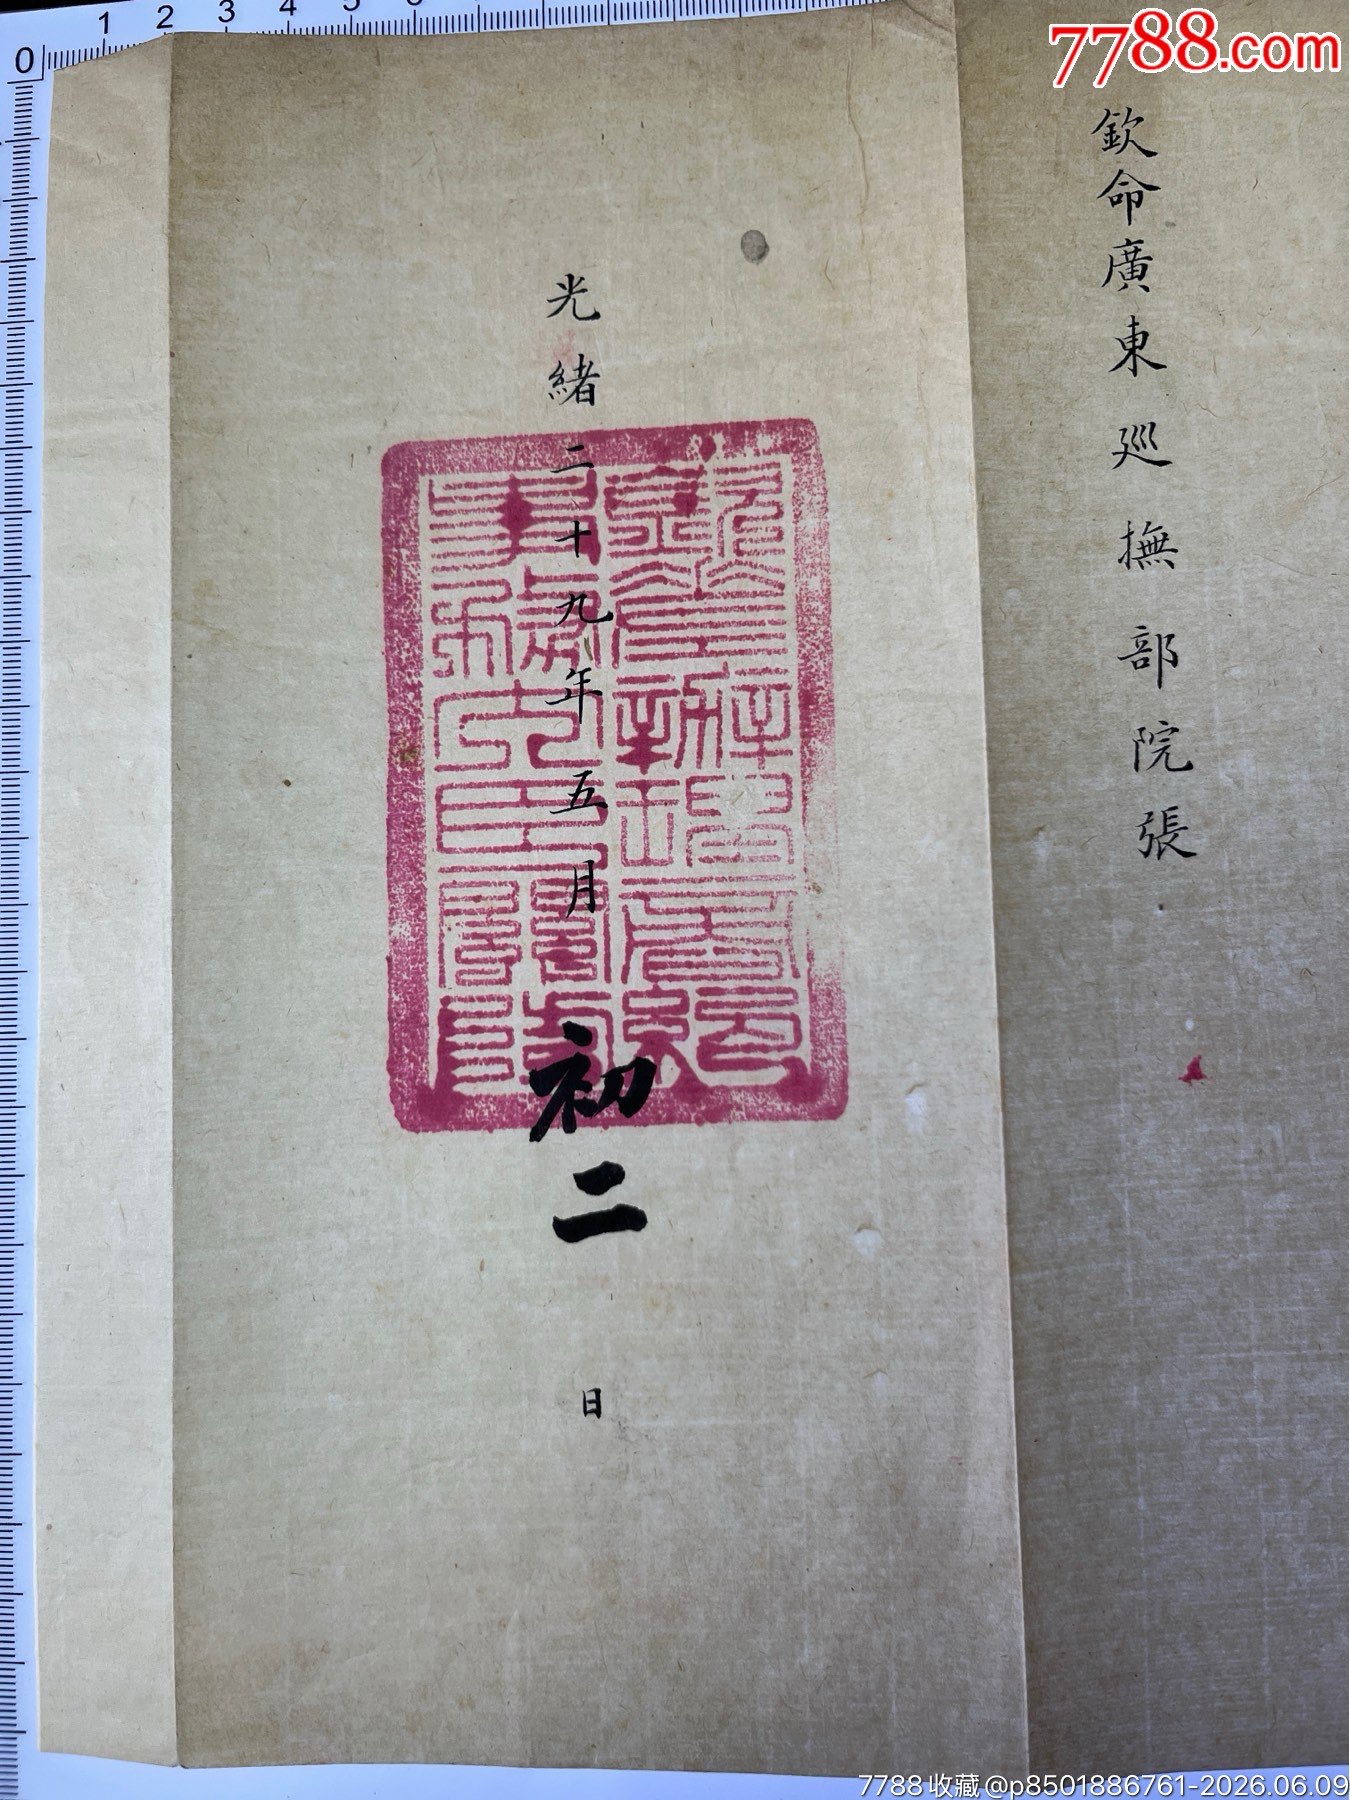 0 1 2 3 4 5 6
7788.com
欽命廣東巡撫部院張
光緒二十九年五月初二日
7788收藏@p8501886761-2026.06.09